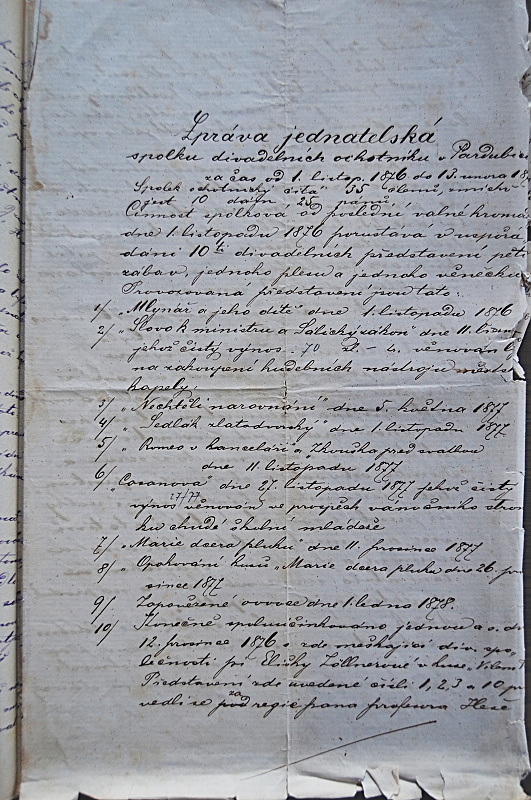 Zpráva jednatelská
spolku divadelních ochotníků v Pardubic
za čas od 1. listop. 1876 do 13. února 18
Spolek ochotnický čítá 35 členů, mnichž
jest 10 dam 25 pánů
Činnost spolková od poslední valné hroma
dne 1. listopadu 1876 pozustává v uspořá
dání 10ti divadelních představení, pěti
zábav, jednoho plesu a jednoho věnečku
Provozovaná představení jsou tato:
1/ „Mlynář a jeho dítě" dne 1. listopadu 1876
2/ „Slovo k ministru a Salický zákon" dne 11.
jehož čistý výnos 70 zl. věnován
na zakoupení hudebních nástrojů městs
kapely.
3/ „Nechtěli narovnání" dne 5. května 1877
4/ „Sedlák zlatodvorský" dne 1. listopadu 1877
5/ „Romeo v kanceláři a „Zkouška před svatbou
dne 11 listopadu 1877
6/ „Casanova" dne 27. listopadu 1877 jehož čistý
výnos 27/77 věnován ve prospěch vánočního strom
ku chudé školní mládeže
7/ „Marie dcera pluku" dne 11. prosince 1877
8/ „Opakování kusu „Marie dcera pluku dne 26. pro
since 1877
9/ Zapovězené ovoce dne 1. ledna 1878.
10/ Konečně spoluúčinkováno jednou a s. d.
12. prosince 1876 s zde meškající div. spo
lečností pí Elišky Zöllnerové v kuse „Vilem
Představení zde uvedené čísli 1, 2, 3 a 10 p
vedli se za pod regie pana profesora Hese